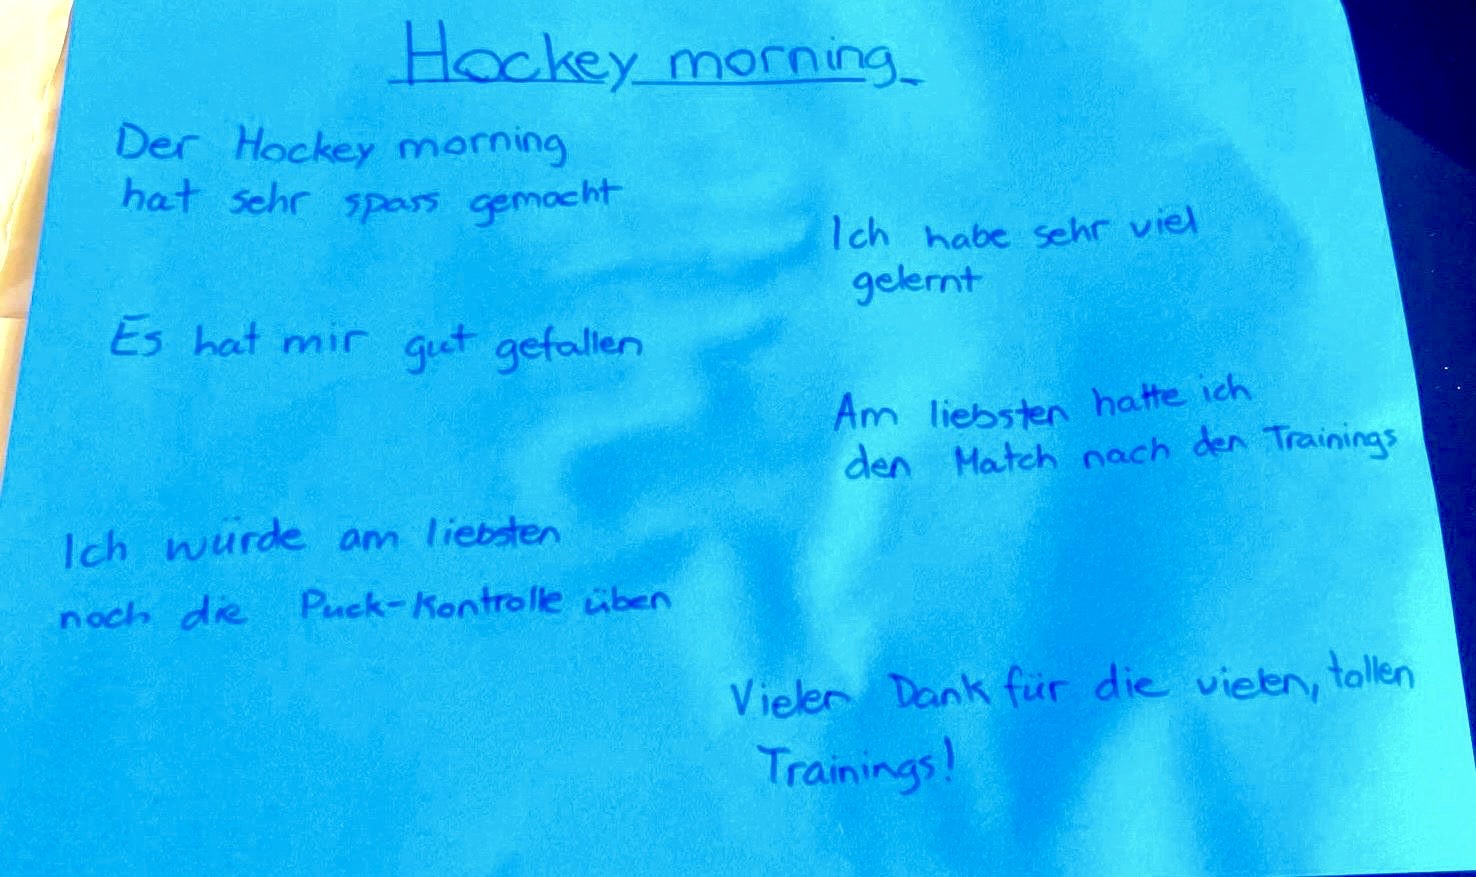 Hockey morning
Der Hockey morning
hat sehr spass gemacht
Ich habe sehr viel
gelernt
Es hat mir gut gefallen
Am liebsten hatte ich
den Match nach den Trainings
Ich würde am liebsten
noch die Puck-Kontrolle üben
Vielen Dank für die vielen, tollen
Trainings!